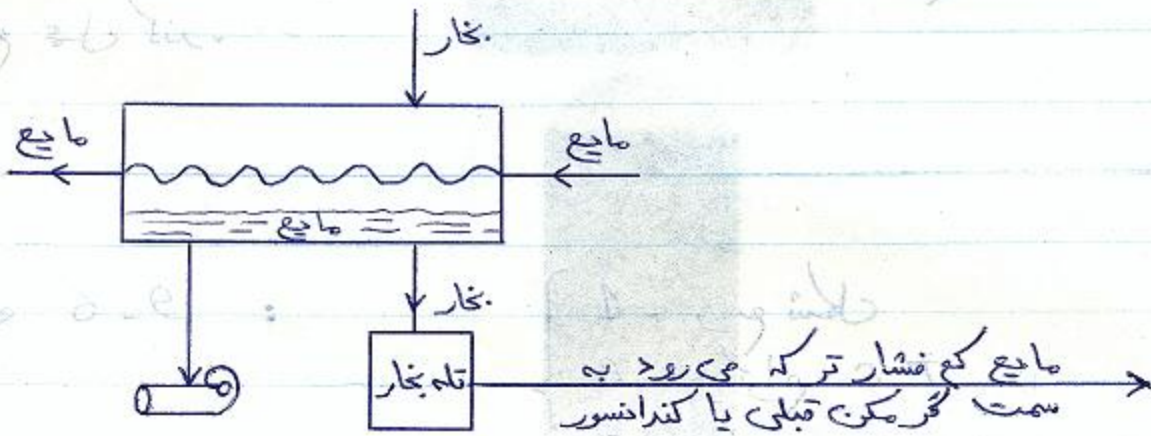 بخار
مایع
مایع
مایع
بخار
تله بخار
مایع کم فشار تر که می رود به
سمت گرمکن قبلی یا کندانسور